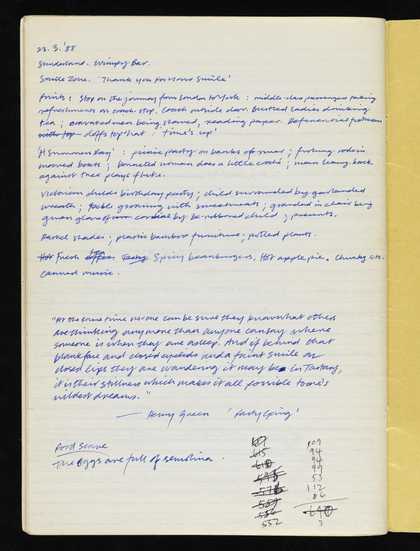 23.3.'88
Sunderland. Wimpy Bar.
Smile Zone. 'Thank you for your smile'
Prints: Stop on the journey from London to York: middle class passengers taking
refreshments at coach stop. Coach outside door. Bustled ladies drinking
tea; cravated men being shaved, reading paper. Deferencial
doffs top hat 'time's up!'
'A Summer Day': picnic party on banks of river; fishing rods in
moored boat; bonneted woman does a little; man leaning back
against tree plays flute.
Victorian childs birthday party; child surrounded by garlanded
wreath; table groaning with sweetmeats; grandad in chair being
given glass of cordial by be-ribboned child; presents.
Pastel shades; plastic bamboo furniture; potted plants.
Fresh tea Spicy beanburgers. Hot apple pie. Chunky
canned music.
"At the same time no-one can be sure they know what others
are thinking any more than anyone can say where
someone is when they are asleep. And if behind that
blank face and closed eyelids and a faint smile on
closed lips they are wandering it may be in Tartary,
it is their stillness which makes it all possible to one's
wildest dreams."
— Henry Green 'Party Going'
Food Scare
The eggs are full of semolina.
109
615 94
610 94
99
53
112
86
640
552 3